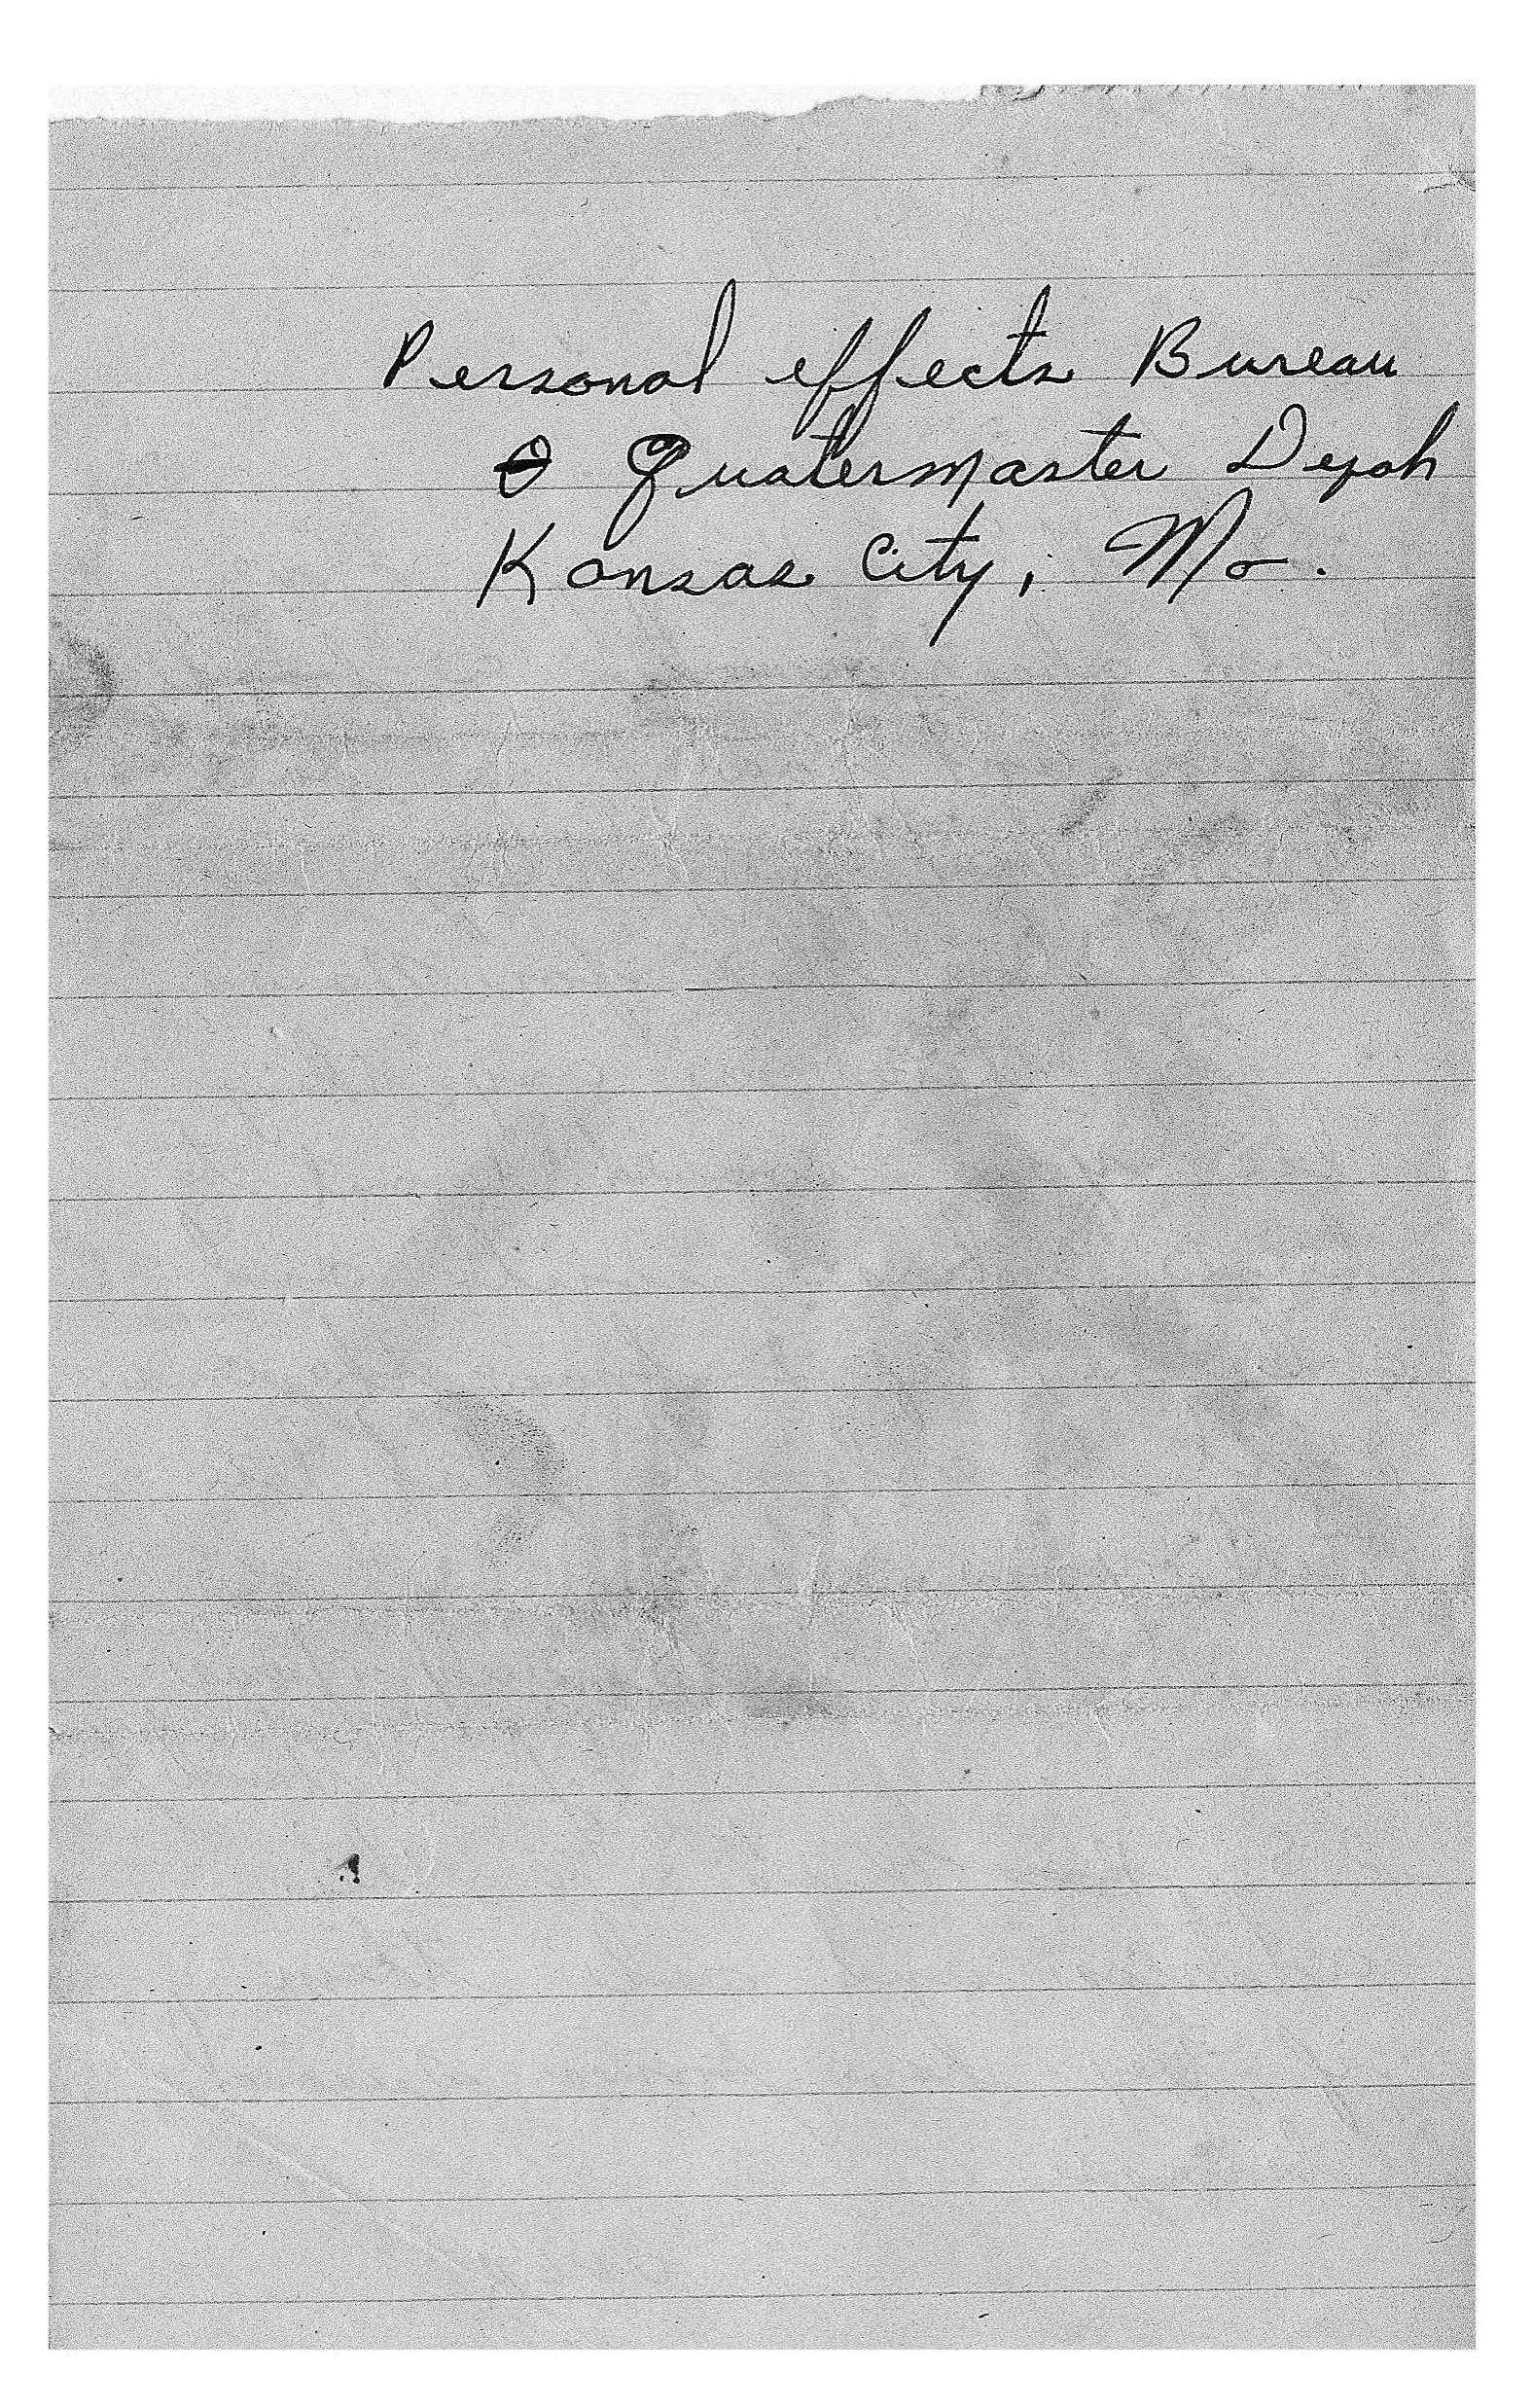 Personal effects Bureau
Quatermaster Depot
Kansas City, Mo.